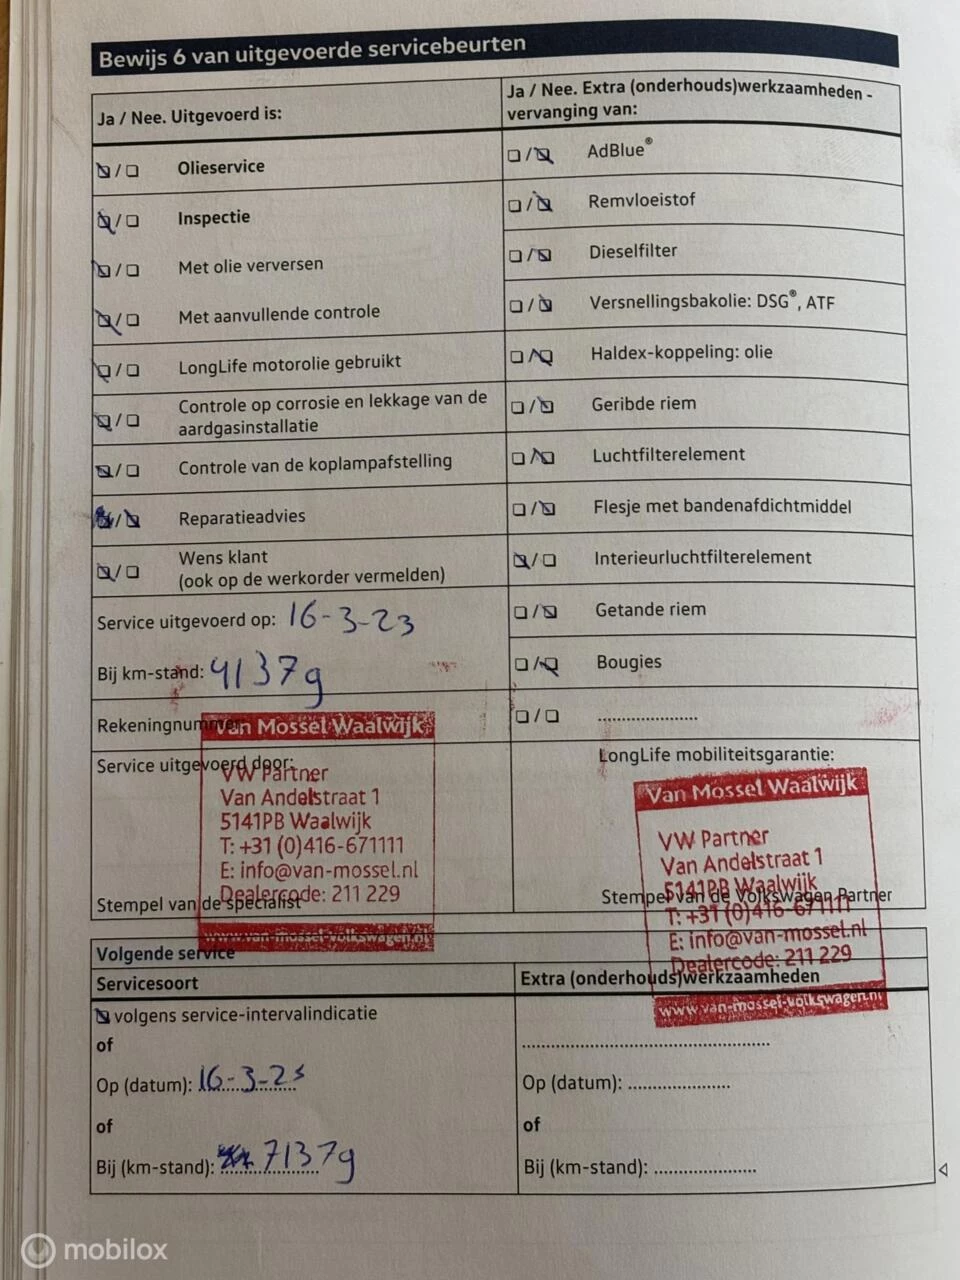 Bewijs 6 van uitgevoerde servicebeurten
Ja / Nee. Uitgevoerd is:
Olieservice
Inspectie
Met olie verversen
Met aanvullende controle
LongLife motorolie gebruikt
Controle op corrosie en lekkage van de
aardgasinstallatie
Controle van de koplampafstelling
Reparatieadvies
Wens klant
(ook op de werkorder vermelden)
Service uitgevoerd op: 16-3-23
Bij km-stand: 41379
Rekeningnummer:
Service uitgevoerd door:
Van Mossel Waalwijk
VW Partner
Van Andelstraat 1
5141PB Waalwijk
T: +31 (0)416-671111
E: info@van-mossel.nl
Dealercode: 211 229
www.van-mossel-volkswagen.nl
Stempel van de specialist
Ja / Nee. Extra (onderhouds)werkzaamheden -
vervanging van:
AdBlue®
Remvloeistof
Dieselfilter
Versnellingsbakolie: DSG®, ATF
Haldex-koppeling: olie
Geribde riem
Luchtfilterelement
Flesje met bandenafdichtmiddel
Interieurluchtfilterelement
Getande riem
Bougies
....................
LongLife mobiliteitsgarantie:
Van Mossel Waalwijk
VW Partner
Van Andelstraat 1
5141PB Waalwijk
T: +31 (0)416-671111
E: info@van-mossel.nl
Dealercode: 211 229
www.van-mossel-volkswagen.nl
Stempel van de Volkswagen Partner
Volgende service
Servicesoort
volgens service-intervalindicatie
of
Op (datum): 16-3-25
of
Bij (km-stand): 71379
Extra (onderhouds)werkzaamheden
..................................................
Op (datum): ....................
of
Bij (km-stand): ....................
mobilox